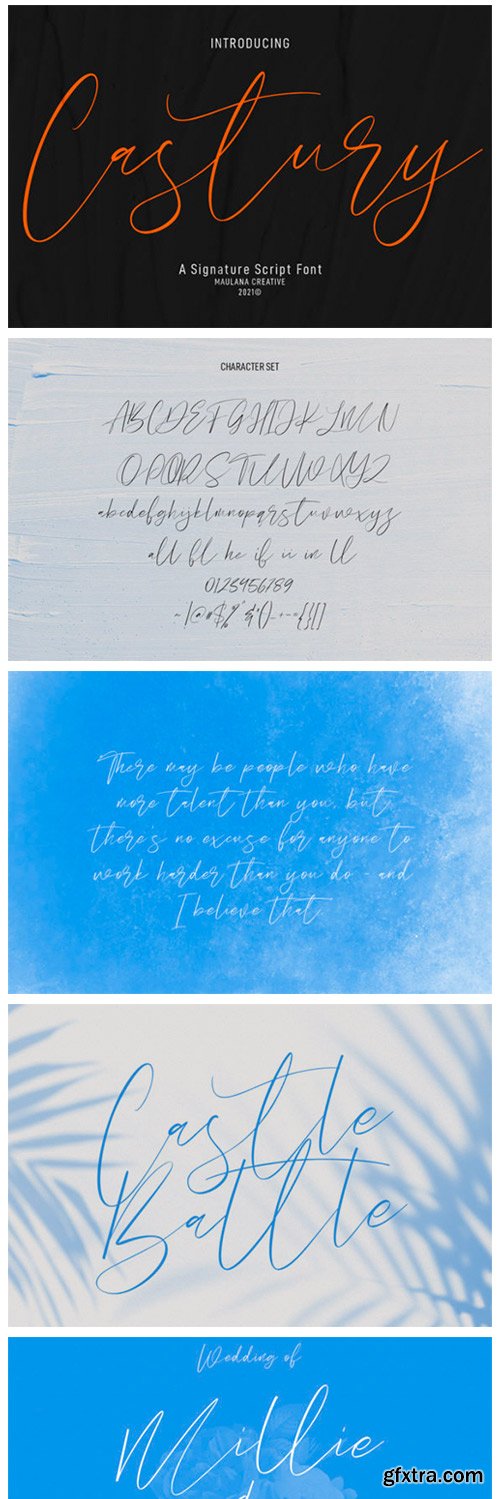 INTRODUCING
Castury
A Signature Script Font
MAULANA CREATIVE
2021©
CHARACTER SET
ABCDEFGHIJKLMN
OPQRSTUVWXYZ
abcdefghijklmnopqrstuvwxyz
all fl he if ii in ll
0123456789
~|@#$%^&*()_+-={}[]
"There may be people who have
more talent than you, but
there's no excuse for anyone to
work harder than you do - and
I believe that.
Castle
Battle
Wedding of
Millie
gfxtra.com